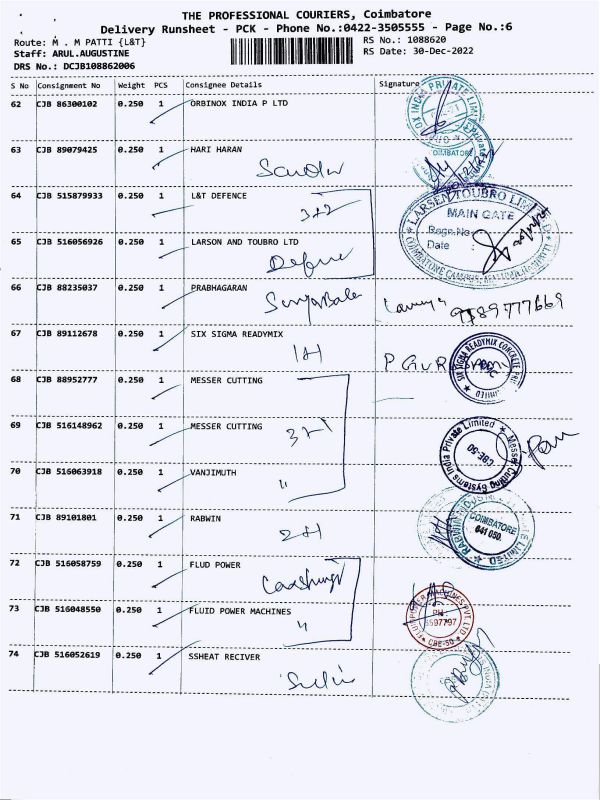 THE PROFESSIONAL COURIERS, Coimbatore
Delivery Runsheet - PCK - Phone No.:0422-3505555 - Page No.:6
Route: M . M PATTI {L&T}
RS No.: 1088620
Staff: ARUL.AUGUSTINE
RS Date: 30-Dec-2022
DRS No.: DCJB108862006
S No Consignment No Weight PCS Consignee Details Signature
62 CJB 86300102 0.250 1 ORBINOX INDIA P LTD
63 CJB 89079425 0.250 1 HARI HARAN
COIMBATORE
64 CJB 515879933 0.250 1 L&T DEFENCE
3+2
LARSEN & TOUBRO LIMITED
MAIN GATE
Regn.No
Date
65 CJB 516056926 0.250 1 LARSON AND TOUBRO LTD
Defence
66 CJB 88235037 0.250 1 PRABHAGARAN
67 CJB 89112678 0.250 1 SIX SIGMA READYMIX
1+1
SIX SIGMA READYMIX CONCRETE PRIVATE LIMITED
68 CJB 88952777 0.250 1 MESSER CUTTING
69 CJB 516148962 0.250 1 MESSER CUTTING
3+1
Messer Cutting Systems India Private Limited
CBE-50
70 CJB 516063918 0.250 1 VANJIMUTH
"
71 CJB 89101801 0.250 1 RABWIN
2+1
COIMBATORE
641 050.
72 CJB 516058759 0.250 1 FLUD POWER
73 CJB 516048550 0.250 1 FLUID POWER MACHINES
"
FLUID POWER MACHINES PVT LTD
CBE-50
74 CJB 516052619 0.250 1 SSHEAT RECIVER